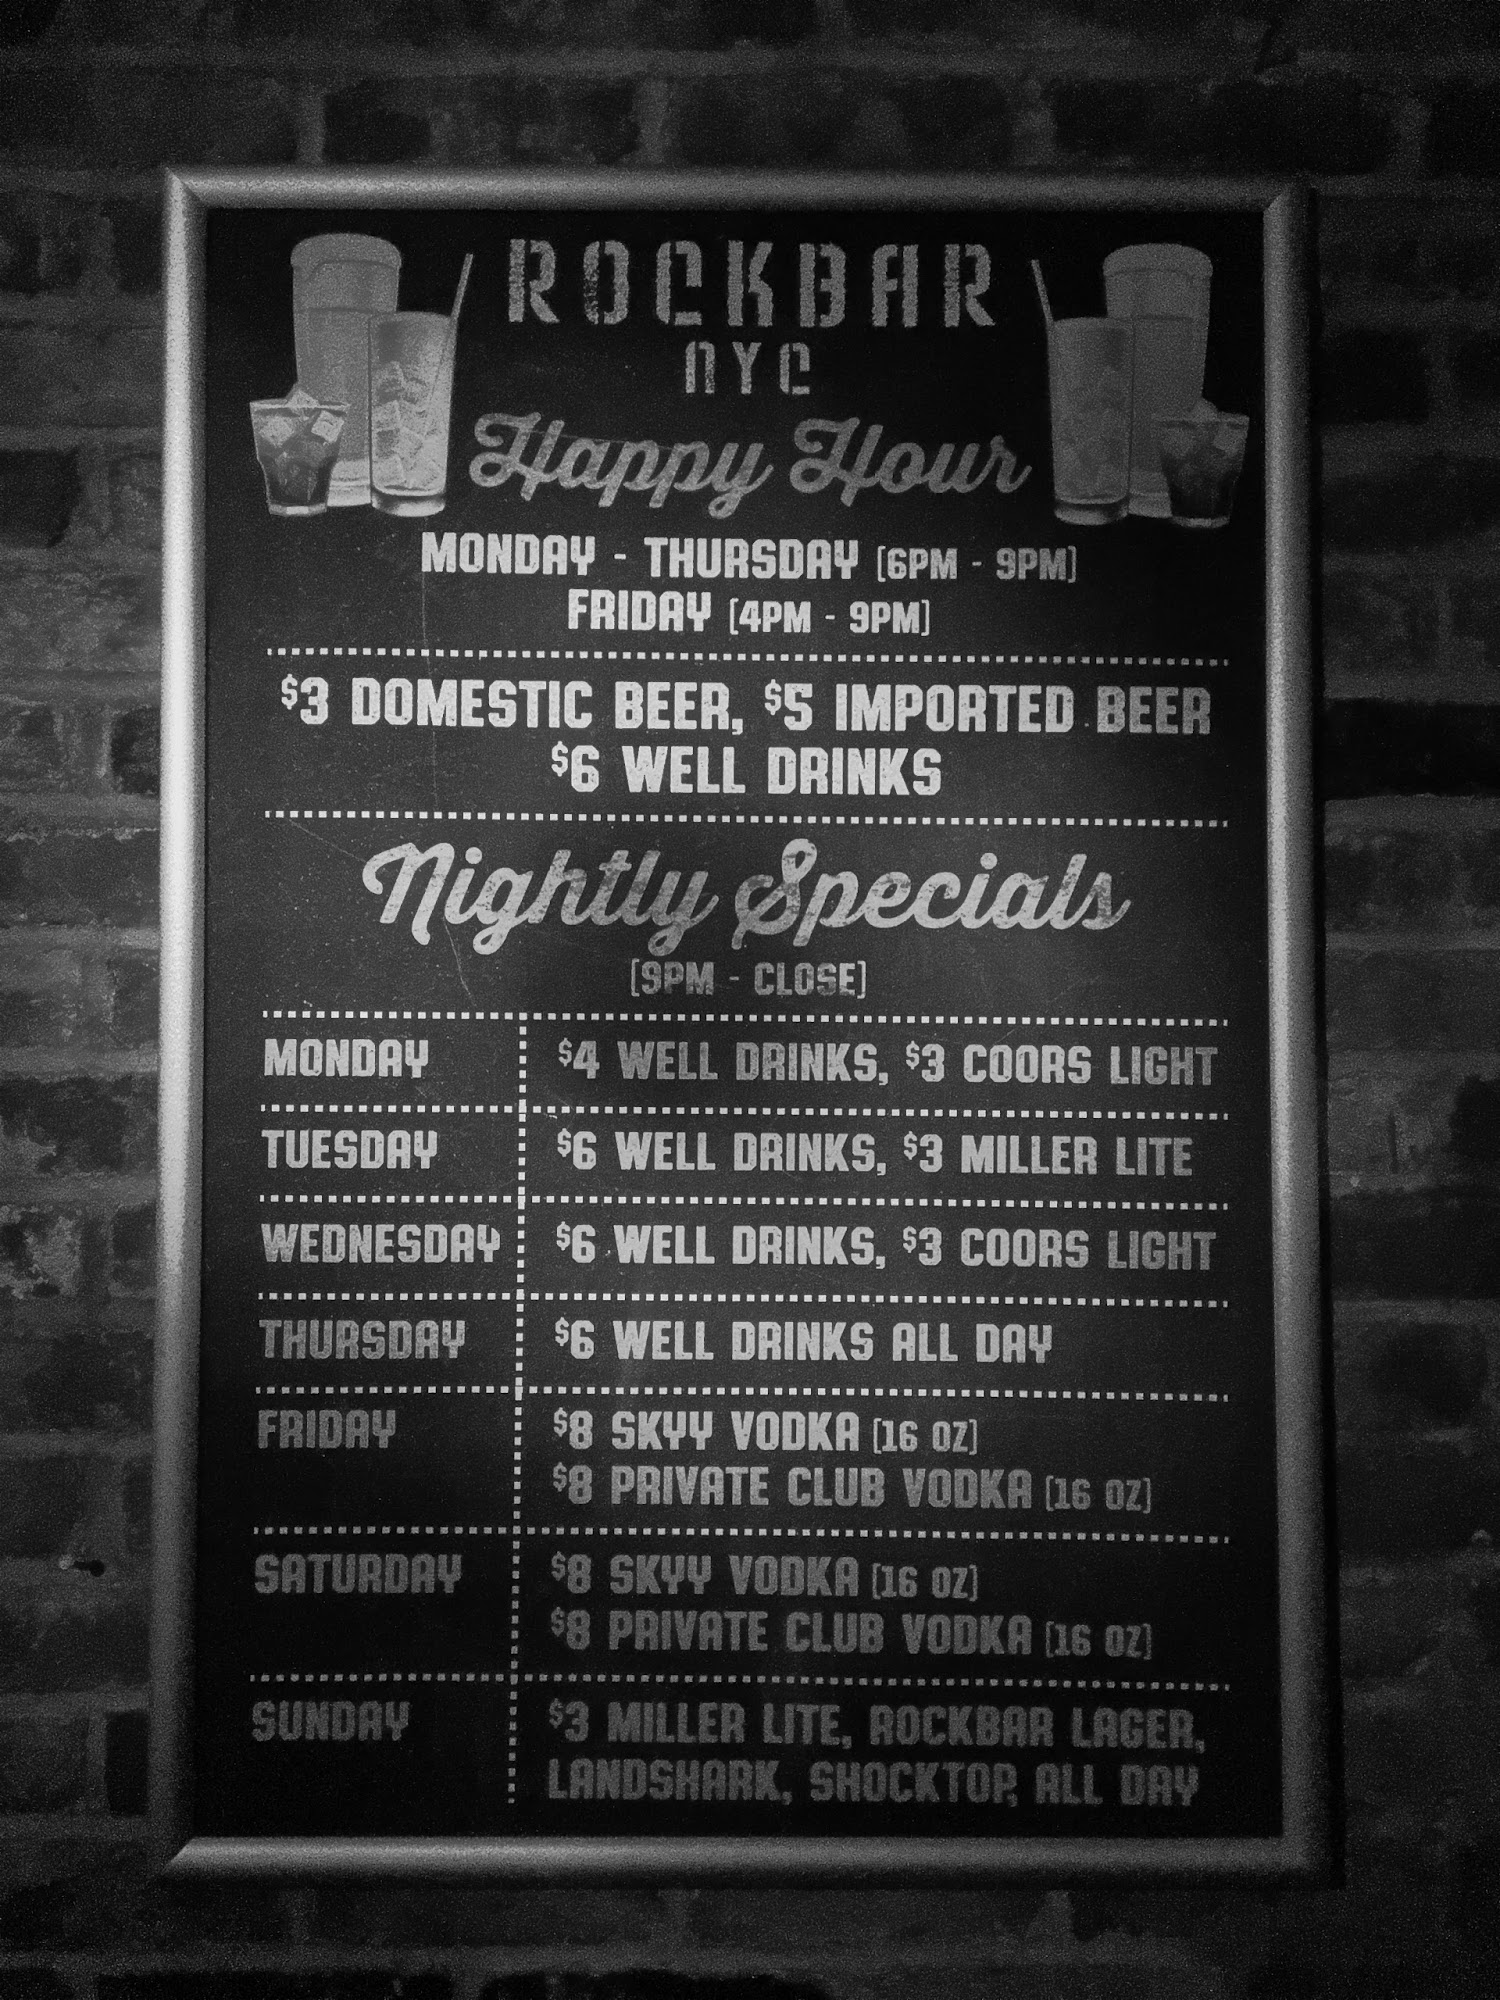 ROCKBAR
NYC
Happy Hour
MONDAY - THURSDAY [6PM - 9PM]
FRIDAY [4PM - 9PM]
$3 DOMESTIC BEER, $5 IMPORTED BEER
$6 WELL DRINKS
Nightly Specials
[9PM - CLOSE]
MONDAY $4 WELL DRINKS, $3 COORS LIGHT
TUESDAY $6 WELL DRINKS, $3 MILLER LITE
WEDNESDAY $6 WELL DRINKS, $3 COORS LIGHT
THURSDAY $6 WELL DRINKS ALL DAY
FRIDAY $8 SKYY VODKA [16 OZ]
$8 PRIVATE CLUB VODKA [16 OZ]
SATURDAY $8 SKYY VODKA [16 OZ]
$8 PRIVATE CLUB VODKA [16 OZ]
SUNDAY $3 MILLER LITE, ROCKBAR LAGER,
LANDSHARK, SHOCKTOP, ALL DAY